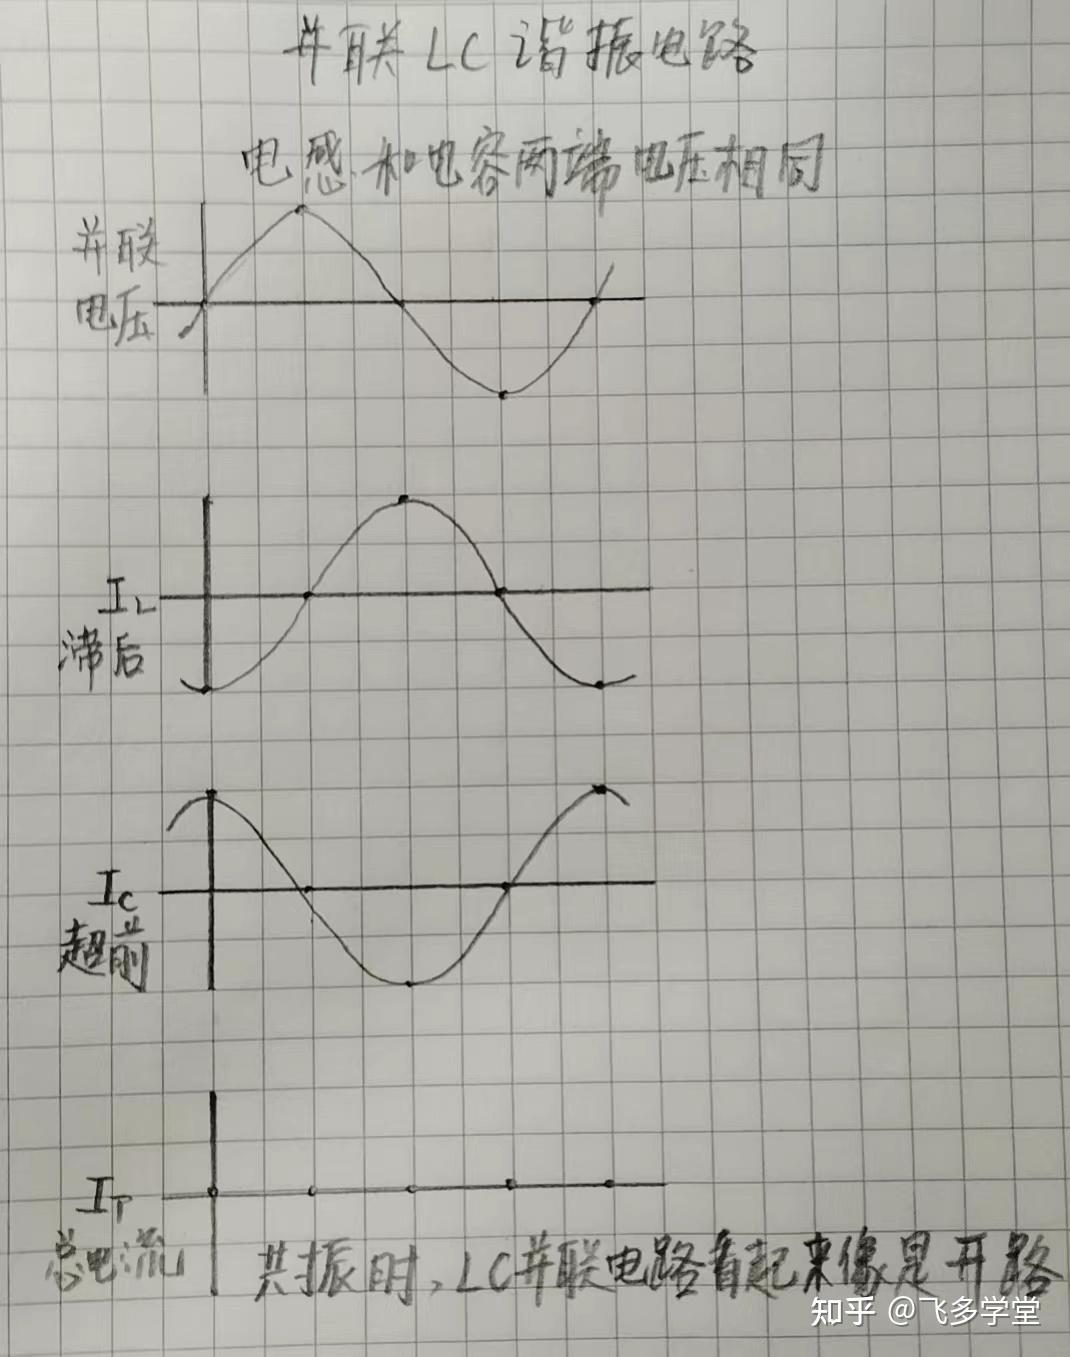 并联LC谐振电路
电感和电容两端电压相同
并联
电压
IL
滞后
IC
超前
IT
总电流
共振时，LC并联电路看起来像是开路
知乎 @飞多学堂